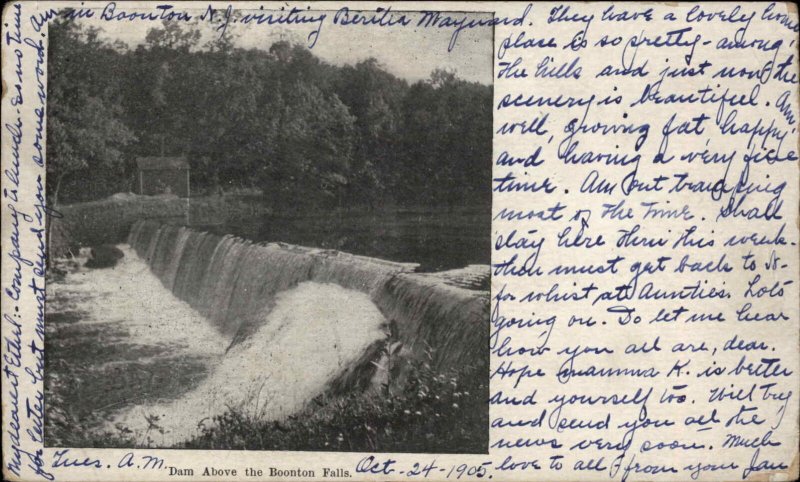 My dearest Ethel:- Company to lunch - so no time
for letter but must send you some word. Am
in Boonton N.J. visiting Bertha Maynard. They have a lovely home
place is so pretty - among
the hills and just now the
scenery is beautiful. Am
well, growing fat, happy
and having a very fine
time. Am out tramping
most of the time. Shall
stay here thru this week -
then must get back to N-
for whist at Aunties. Lots
going on. Do let me hear
how you all are, dear.
Hope mamma K. is better
and yourself too. Will try
and send you all the
news very soon. Much
love to all from your Jan
Tues. A.M.
Dam Above the Boonton Falls.
Oct-24-1905